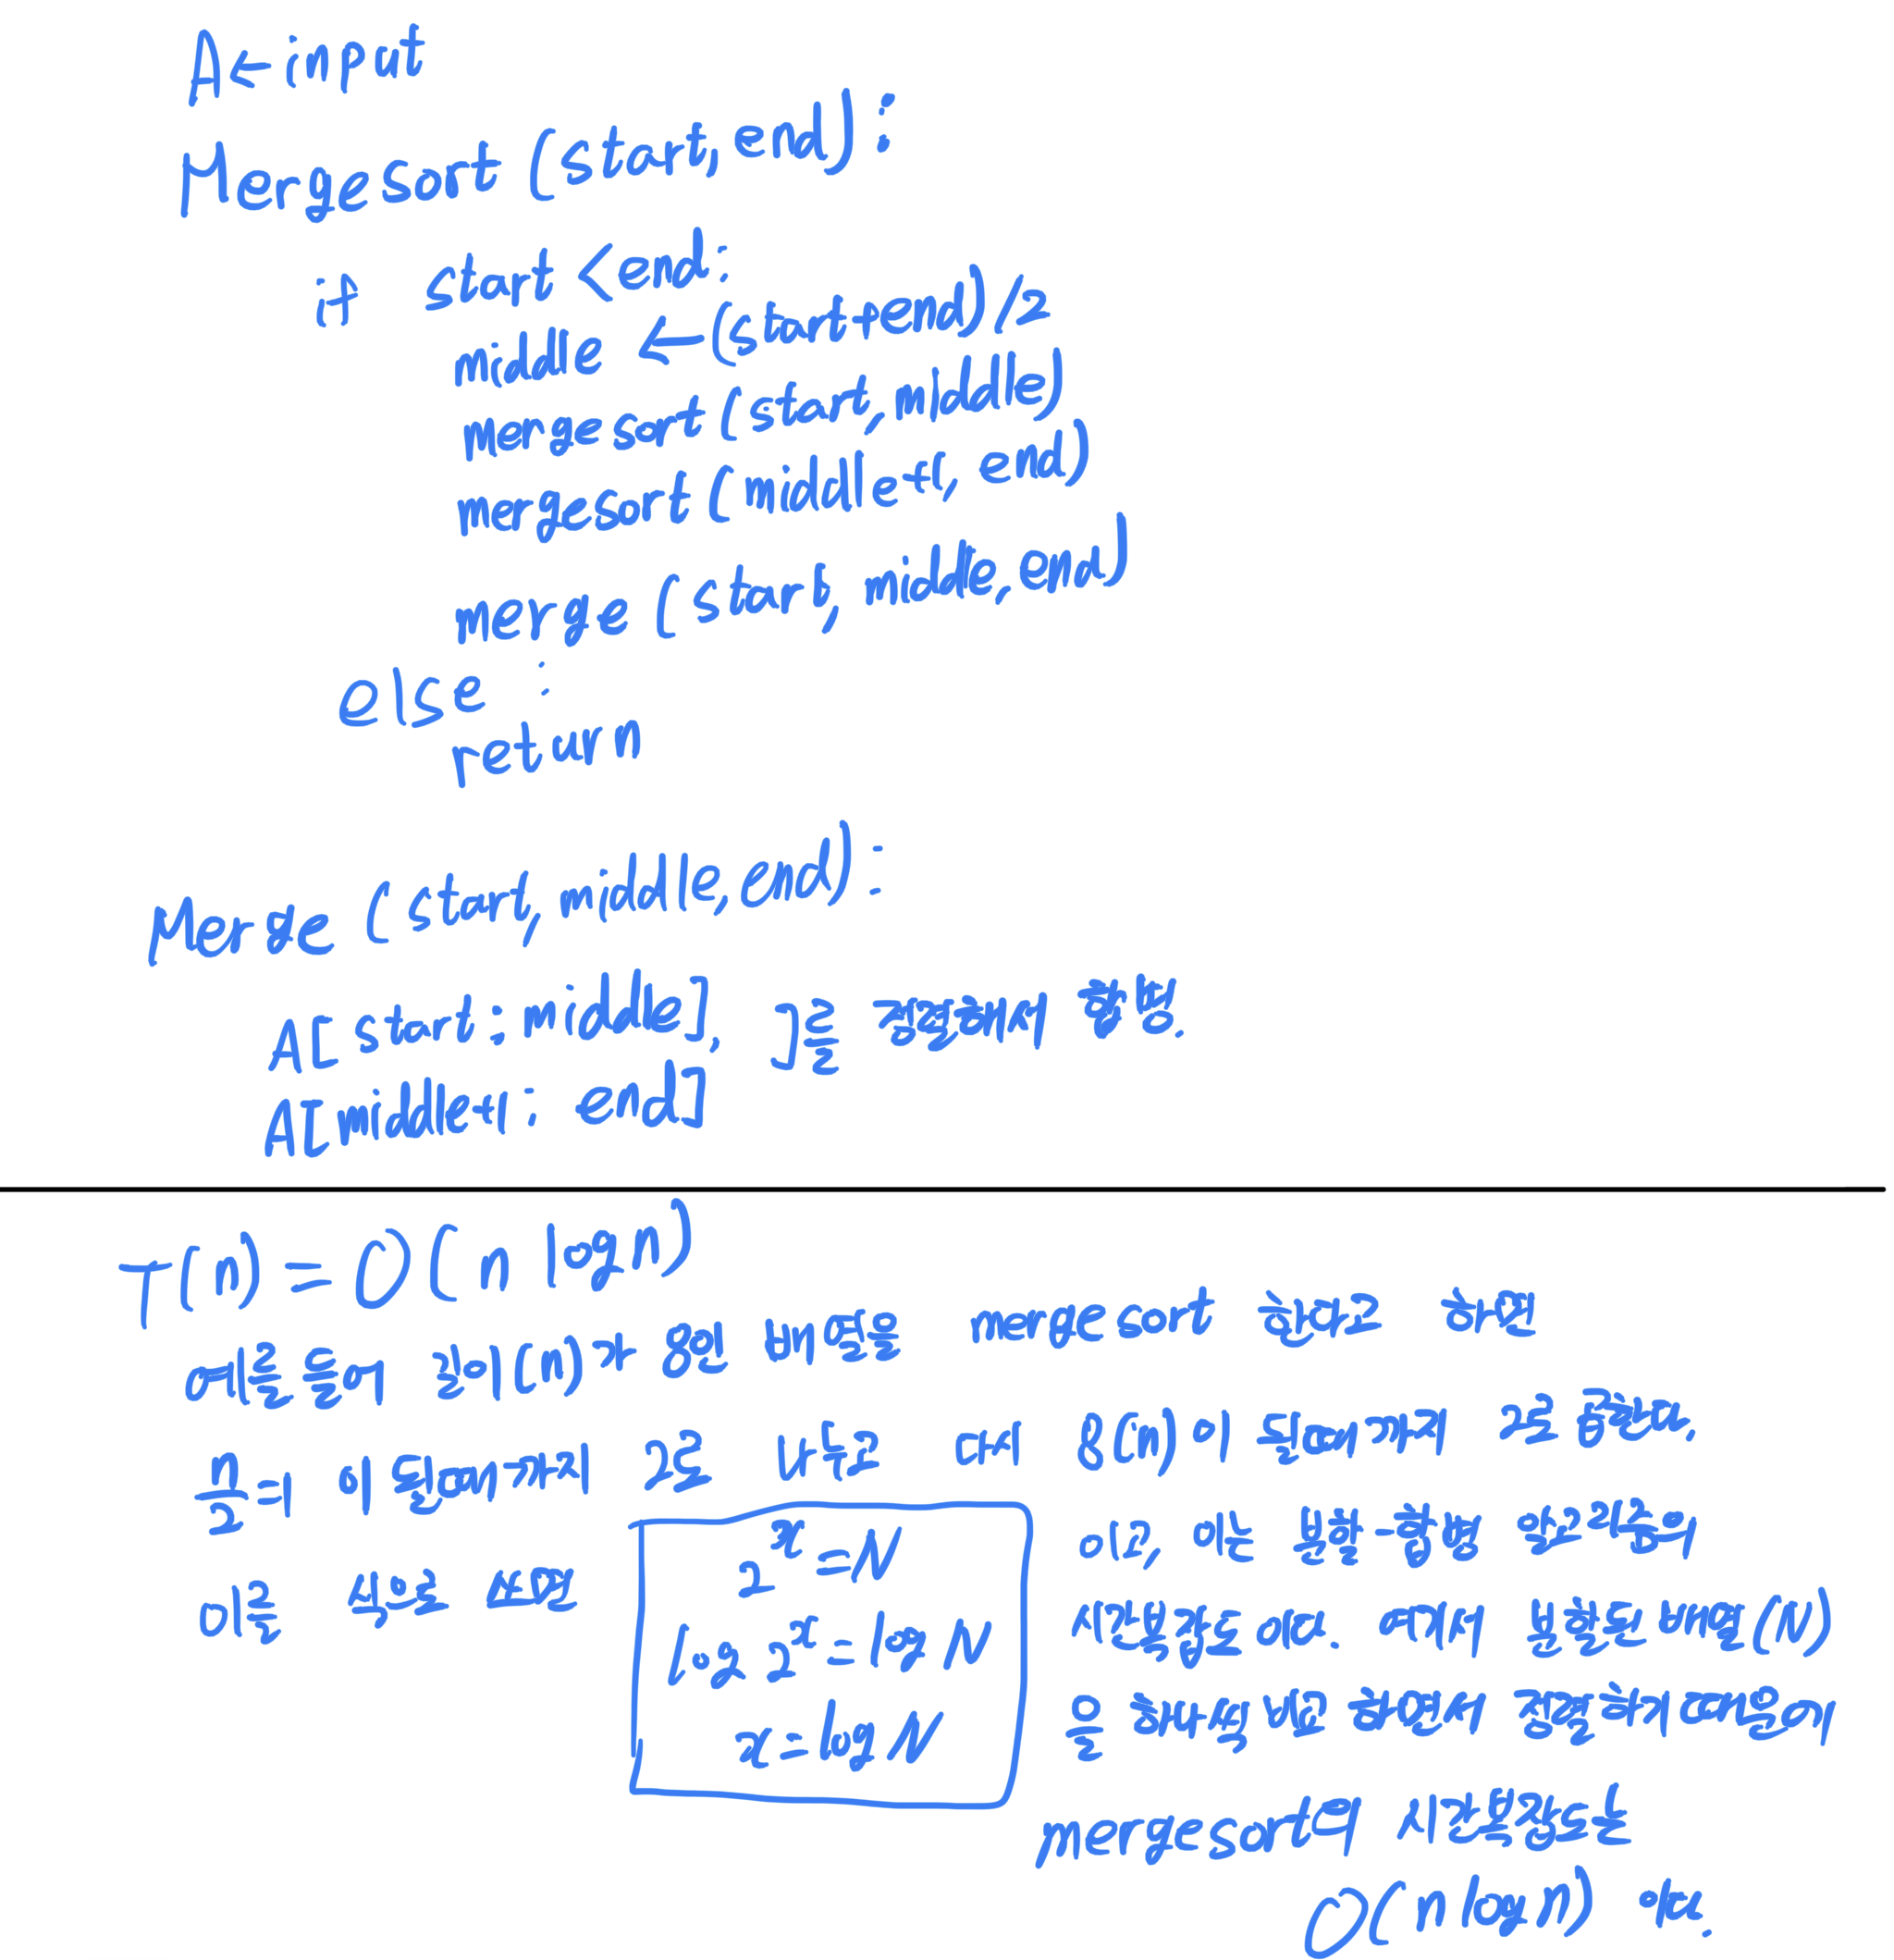 A ← input
Mergesort (start, end) :
if start < end:
middle ← (start+end)//2
mergesort (start, middle)
mergesort (middle+1, end)
merge (start, middle, end)
else :
return
Merge (start, middle, end) :
A[start : middle], ]를 정렬해서 합병.
A[middle+1 : end]
T(n) = O(n log n)
예를 들어 길이(n)가 8인 배열을 merge sort 한다고 하면
n/2=1 이 될때까지 2로 나누고 다시 8(n)이 될때까지 곱한다.
이를 식으로 쓰면
2^x = N
log 2^x = log N
x = log N
이고, 이는 분할-합병 알고리즘의
시간복잡도이다. 여기서 분할된 배열(N)
을 하나씩 비교하면서 정렬하기 때문에
mergesort의 시간복잡도는
O(n log n) 이다.